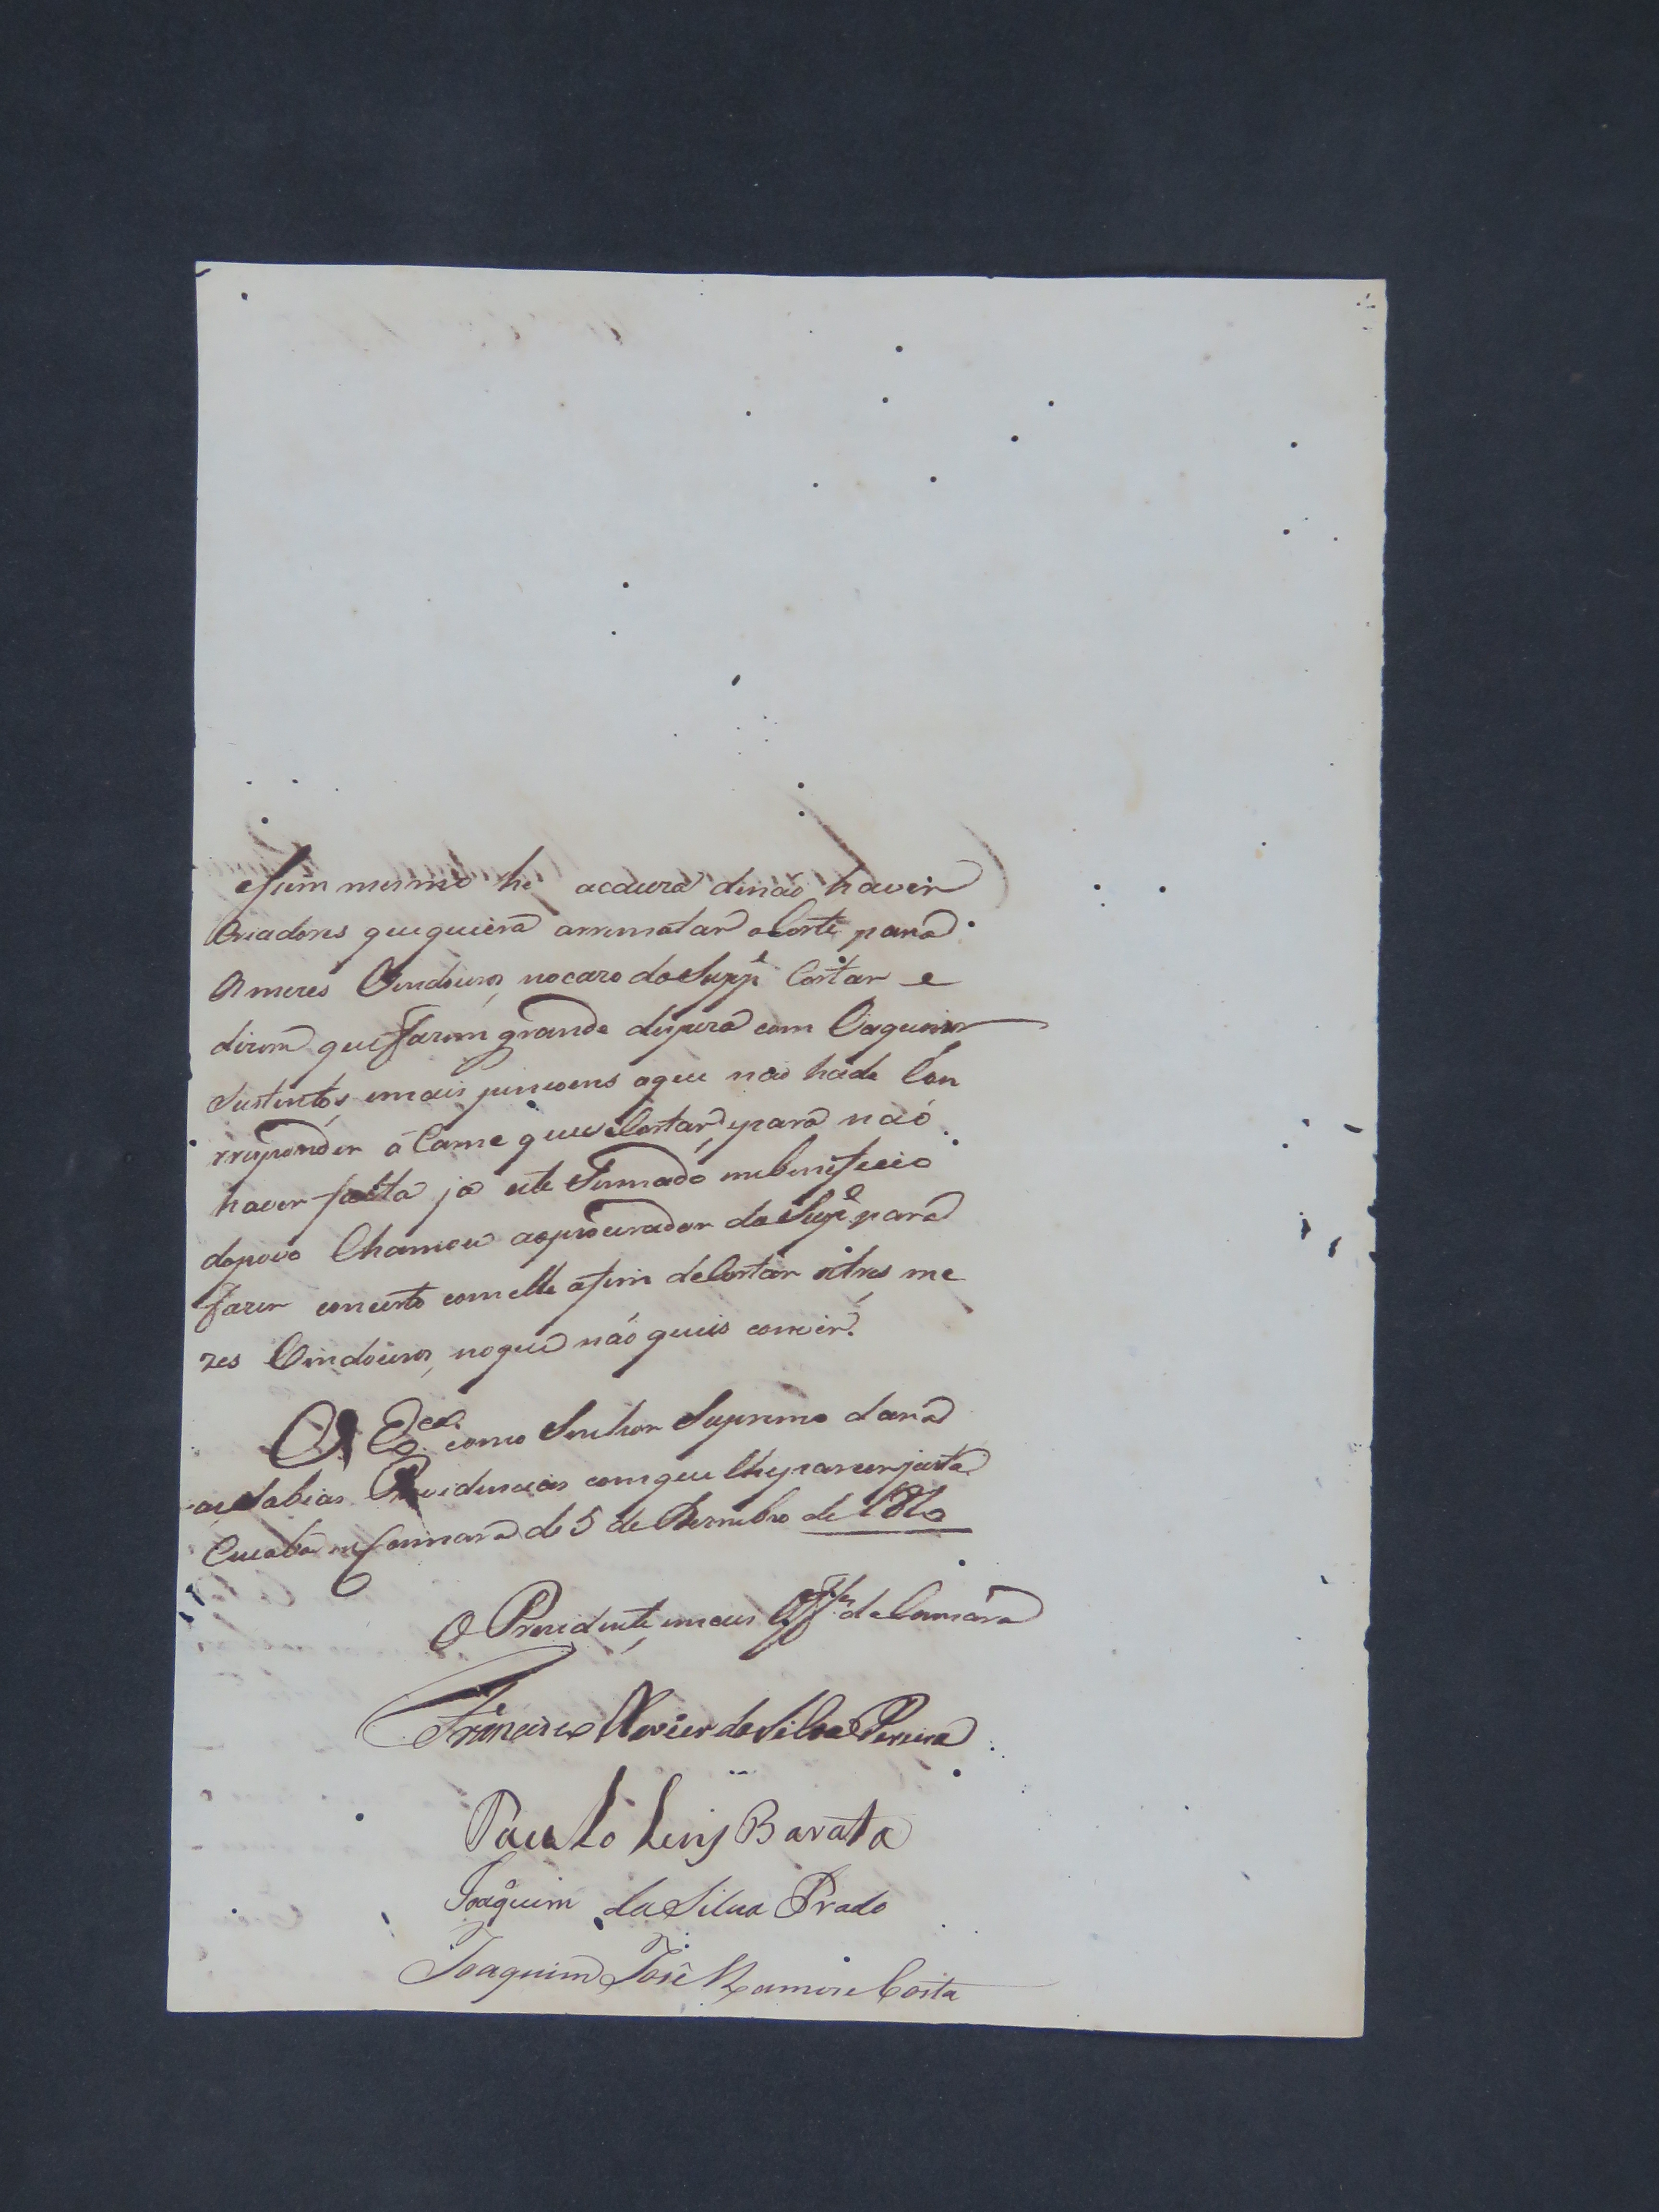 Asim mesmo he acauza denáo haver
Criadores que queira arrematar o Corte para
Os mezes Vindouros, no cazo do Suppe Cortar e
dizem que fazem grande despeza com Vaqueiros
Sustentos, emais pencoens aque náo hade Con
rresponder á Carne que se Cortar, epara náo
haver falta já este Sennado em benificio
dopovo Chamou ao procurador do Supe para
fazer concerto com elle afim de Cortar os tres me
zes Vindouros, no que náo quis convir.
V. Exca como Senhor Supremo dará
as Sabias Providencias com que lhe parecer justa
Cuiabá em Cammara de 5 de Dezembro de
O Prezidente, emais Offes da Camára
Francisco Xavier da Silva Pereira
Paulo Luis Barata
Joaquim da Silva Prado
Joaquim José Ramos e Costa